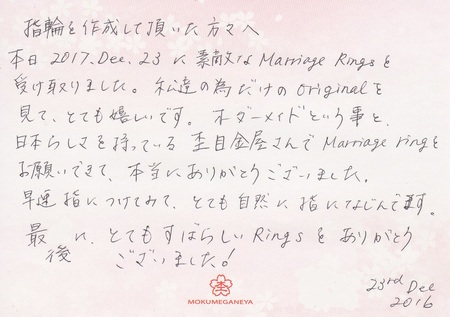 指輪を作成して頂いた方々へ
本日 2017. Dec. 23 に 素敵な Marriage Rings を
受け取りました。私達の為だけの Original を
見て、とても嬉しいです。オーダーメイドという事と、
日本らしさを持っている 杢目金屋さんで Marriage ringを
お願いできて、本当にありがとうございました。
早速 指につけてみて、とても自然に 指になじんでます。
最後に、とてもすばらしい Rings を ありがとう
ございました！
MOKUMEGANEYA
23rd Dec
2016